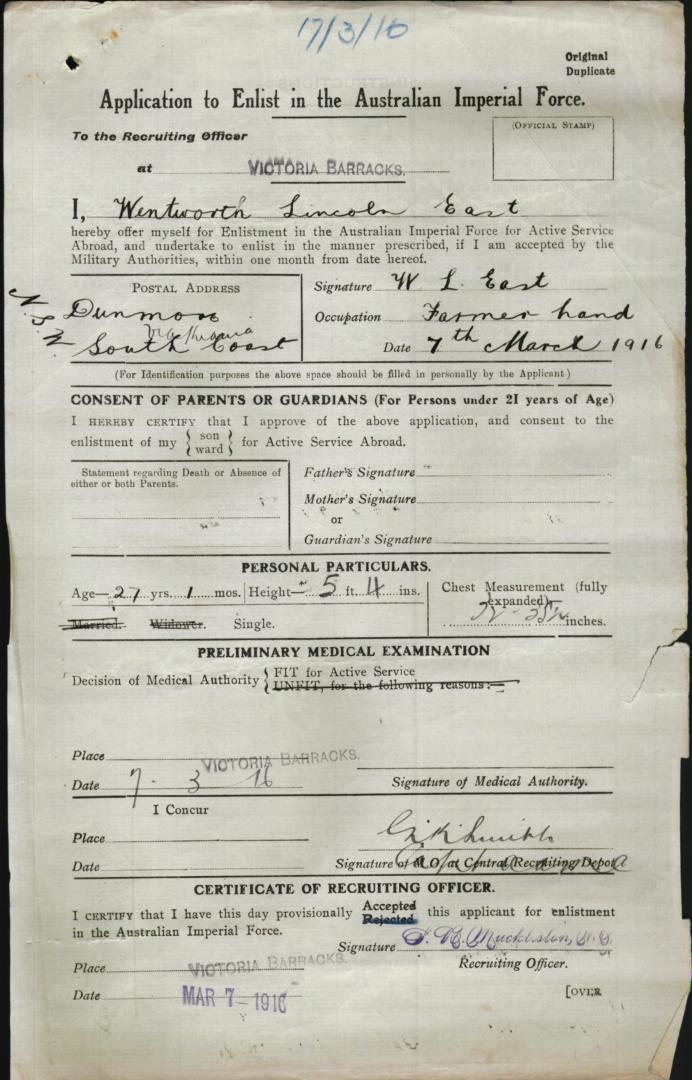 17/3/16
Original
Duplicate
Application to Enlist in the Australian Imperial Force.
To the Recruiting Officer
(OFFICIAL STAMP)
at VICTORIA BARRACKS.
I, Wentworth Lincoln East
hereby offer myself for Enlistment in the Australian Imperial Force for Active Service
Abroad, and undertake to enlist in the manner prescribed, if I am accepted by the
Military Authorities, within one month from date hereof.
POSTAL ADDRESS
Dunmore
South Coast
N.S.W.
Signature W L East
Occupation Farmer hand
Date 7th March 1916
(For Identification purposes the above space should be filled in personally by the Applicant)
CONSENT OF PARENTS OR GUARDIANS (For Persons under 21 years of Age)
I HEREBY CERTIFY that I approve of the above application, and consent to the
enlistment of my { son ward } for Active Service Abroad.
Statement regarding Death or Absence of
either or both Parents.
Father's Signature
Mother's Signature
or
Guardian's Signature
PERSONAL PARTICULARS.
Age—27 yrs. 1 mos. Height— 5 ft. 4 ins.
Chest Measurement (fully
expanded)—
inches.
Married. Widower. Single.
PRELIMINARY MEDICAL EXAMINATION
Decision of Medical Authority { FIT for Active Service
UNFIT, for the following reasons:—
Place VICTORIA BARRACKS.
Date 7. 3 16
Signature of Medical Authority.
I Concur
Place
Date
Signature of M.O. at Central Recruiting Depot
CERTIFICATE OF RECRUITING OFFICER.
I CERTIFY that I have this day provisionally Accepted Rejected this applicant for enlistment
in the Australian Imperial Force.
Signature
Recruiting Officer.
Place VICTORIA BARRACKS.
Date MAR 7 - 1916
[OVER